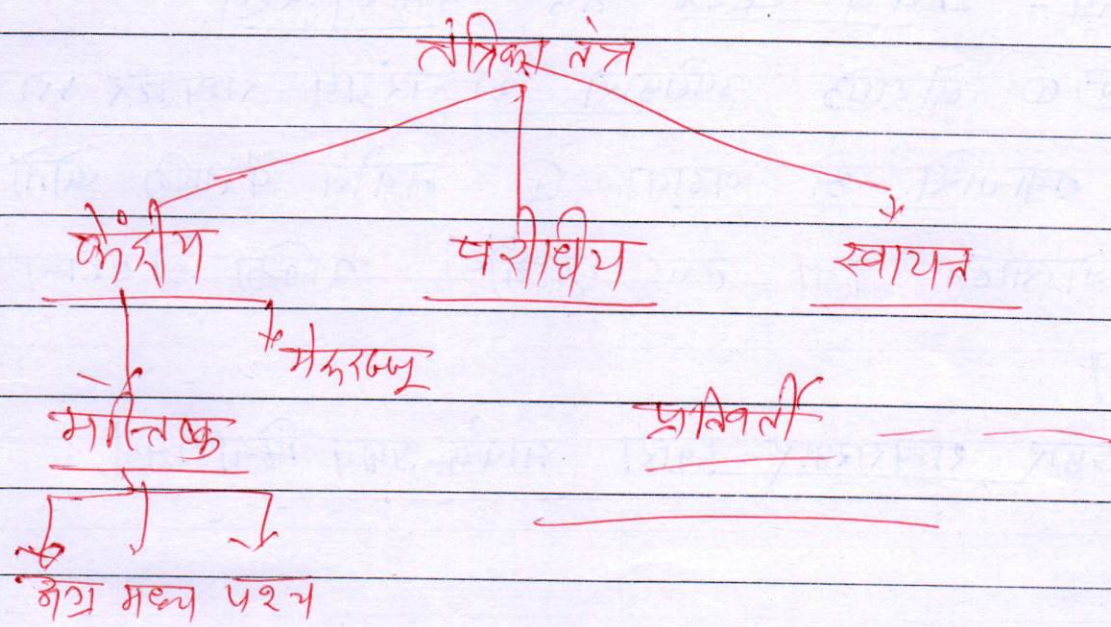 तंत्रिका तंत्र
केंद्रीय परीधीय स्वायत्त
मेरुरज्जू
मस्तिष्क प्रतिवर्ती
अग्र मध्य पश्च